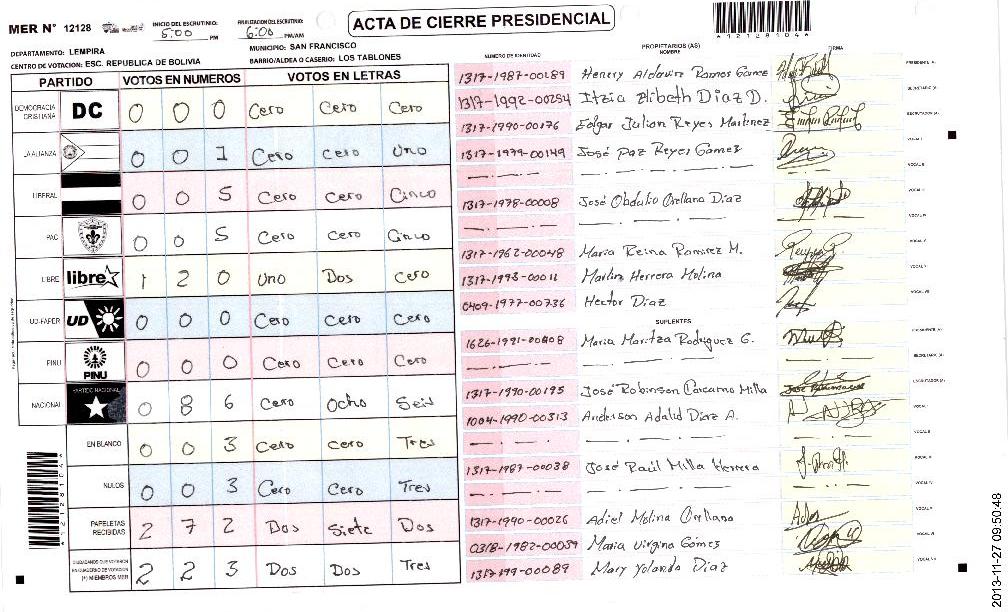 MER N° 12128
INICIO DEL ESCRUTINIO: 5:00 PM
FINALIZACION DEL ESCRUTINIO: 6:00 PM/AM
ACTA DE CIERRE PRESIDENCIAL
A12128104A
DEPARTAMENTO: LEMPIRA
MUNICIPIO: SAN FRANCISCO
CENTRO DE VOTACION: ESC. REPUBLICA DE BOLIVIA
BARRIO/ALDEA O CASERIO: LOS TABLONES
PARTIDO VOTOS EN NUMEROS VOTOS EN LETRAS
DEMOCRACIA CRISTIANA DC 0 0 0 Cero Cero Cero
LA ALIANZA 0 0 1 Cero Cero Uno
LIBERAL 0 0 5 Cero Cero Cinco
PAC 0 0 5 Cero Cero Cinco
LIBRE libre 1 2 0 Uno Dos Cero
UD-FAPER UD 0 0 0 Cero Cero Cero
PINU PINU 0 0 0 Cero Cero Cero
NACIONAL PARTIDO NACIONAL 0 8 6 Cero Ocho Seis
EN BLANCO 0 0 3 Cero Cero Tres
NULOS 0 0 3 Cero Cero Tres
PAPELETAS RECIBIDAS 2 7 2 Dos Siete Dos
CIUDADANOS QUE VOTARON EN CUADERNO DE VOTACION (+) MIEMBROS MER 2 2 3 Dos Dos Tres
NUMERO DE IDENTIDAD PROPIETARIOS (AS) NOMBRE FIRMA
1317-1987-00189 Henrry Aldouin Ramos Gamez PRESIDENTE (A)
1317-1992-00254 Itzia Elibeth Diaz D. SECRETARIO (A)
1317-1990-00176 Edgar Julian Reyes Martinez ESCRUTADOR (A)
1317-1979-00149 José Paz Reyes Gamez VOCAL I
VOCAL II
1317-1978-00008 José Obdulio Orellana Diaz VOCAL III
VOCAL IV
1317-1962-00048 Maria Reina Ramirez M. VOCAL V
1317-1993-00011 Marlin Herrera Molina VOCAL VI
0409-1977-00736 Hector Diaz VOCAL VII
SUPLENTES
1626-1991-00408 Maria Maritza Rodriguez G. PRESIDENTE (A)
SECRETARIO (A)
1317-1990-00195 José Robinson Carcamo Milla ESCRUTADOR (A)
1004-1990-00313 Anderson Adalid Diaz A. VOCAL I
VOCAL II
1317-1987-00038 José Raúl Milla Herrera VOCAL III
VOCAL IV
1317-1990-00026 Adiel Molina Orellana VOCAL V
0318-1982-00039 Maria Virgina Gómez VOCAL VI
1317-199-00089 Mary Yolanda Diaz VOCAL VII
2013-11-27 09:50:48